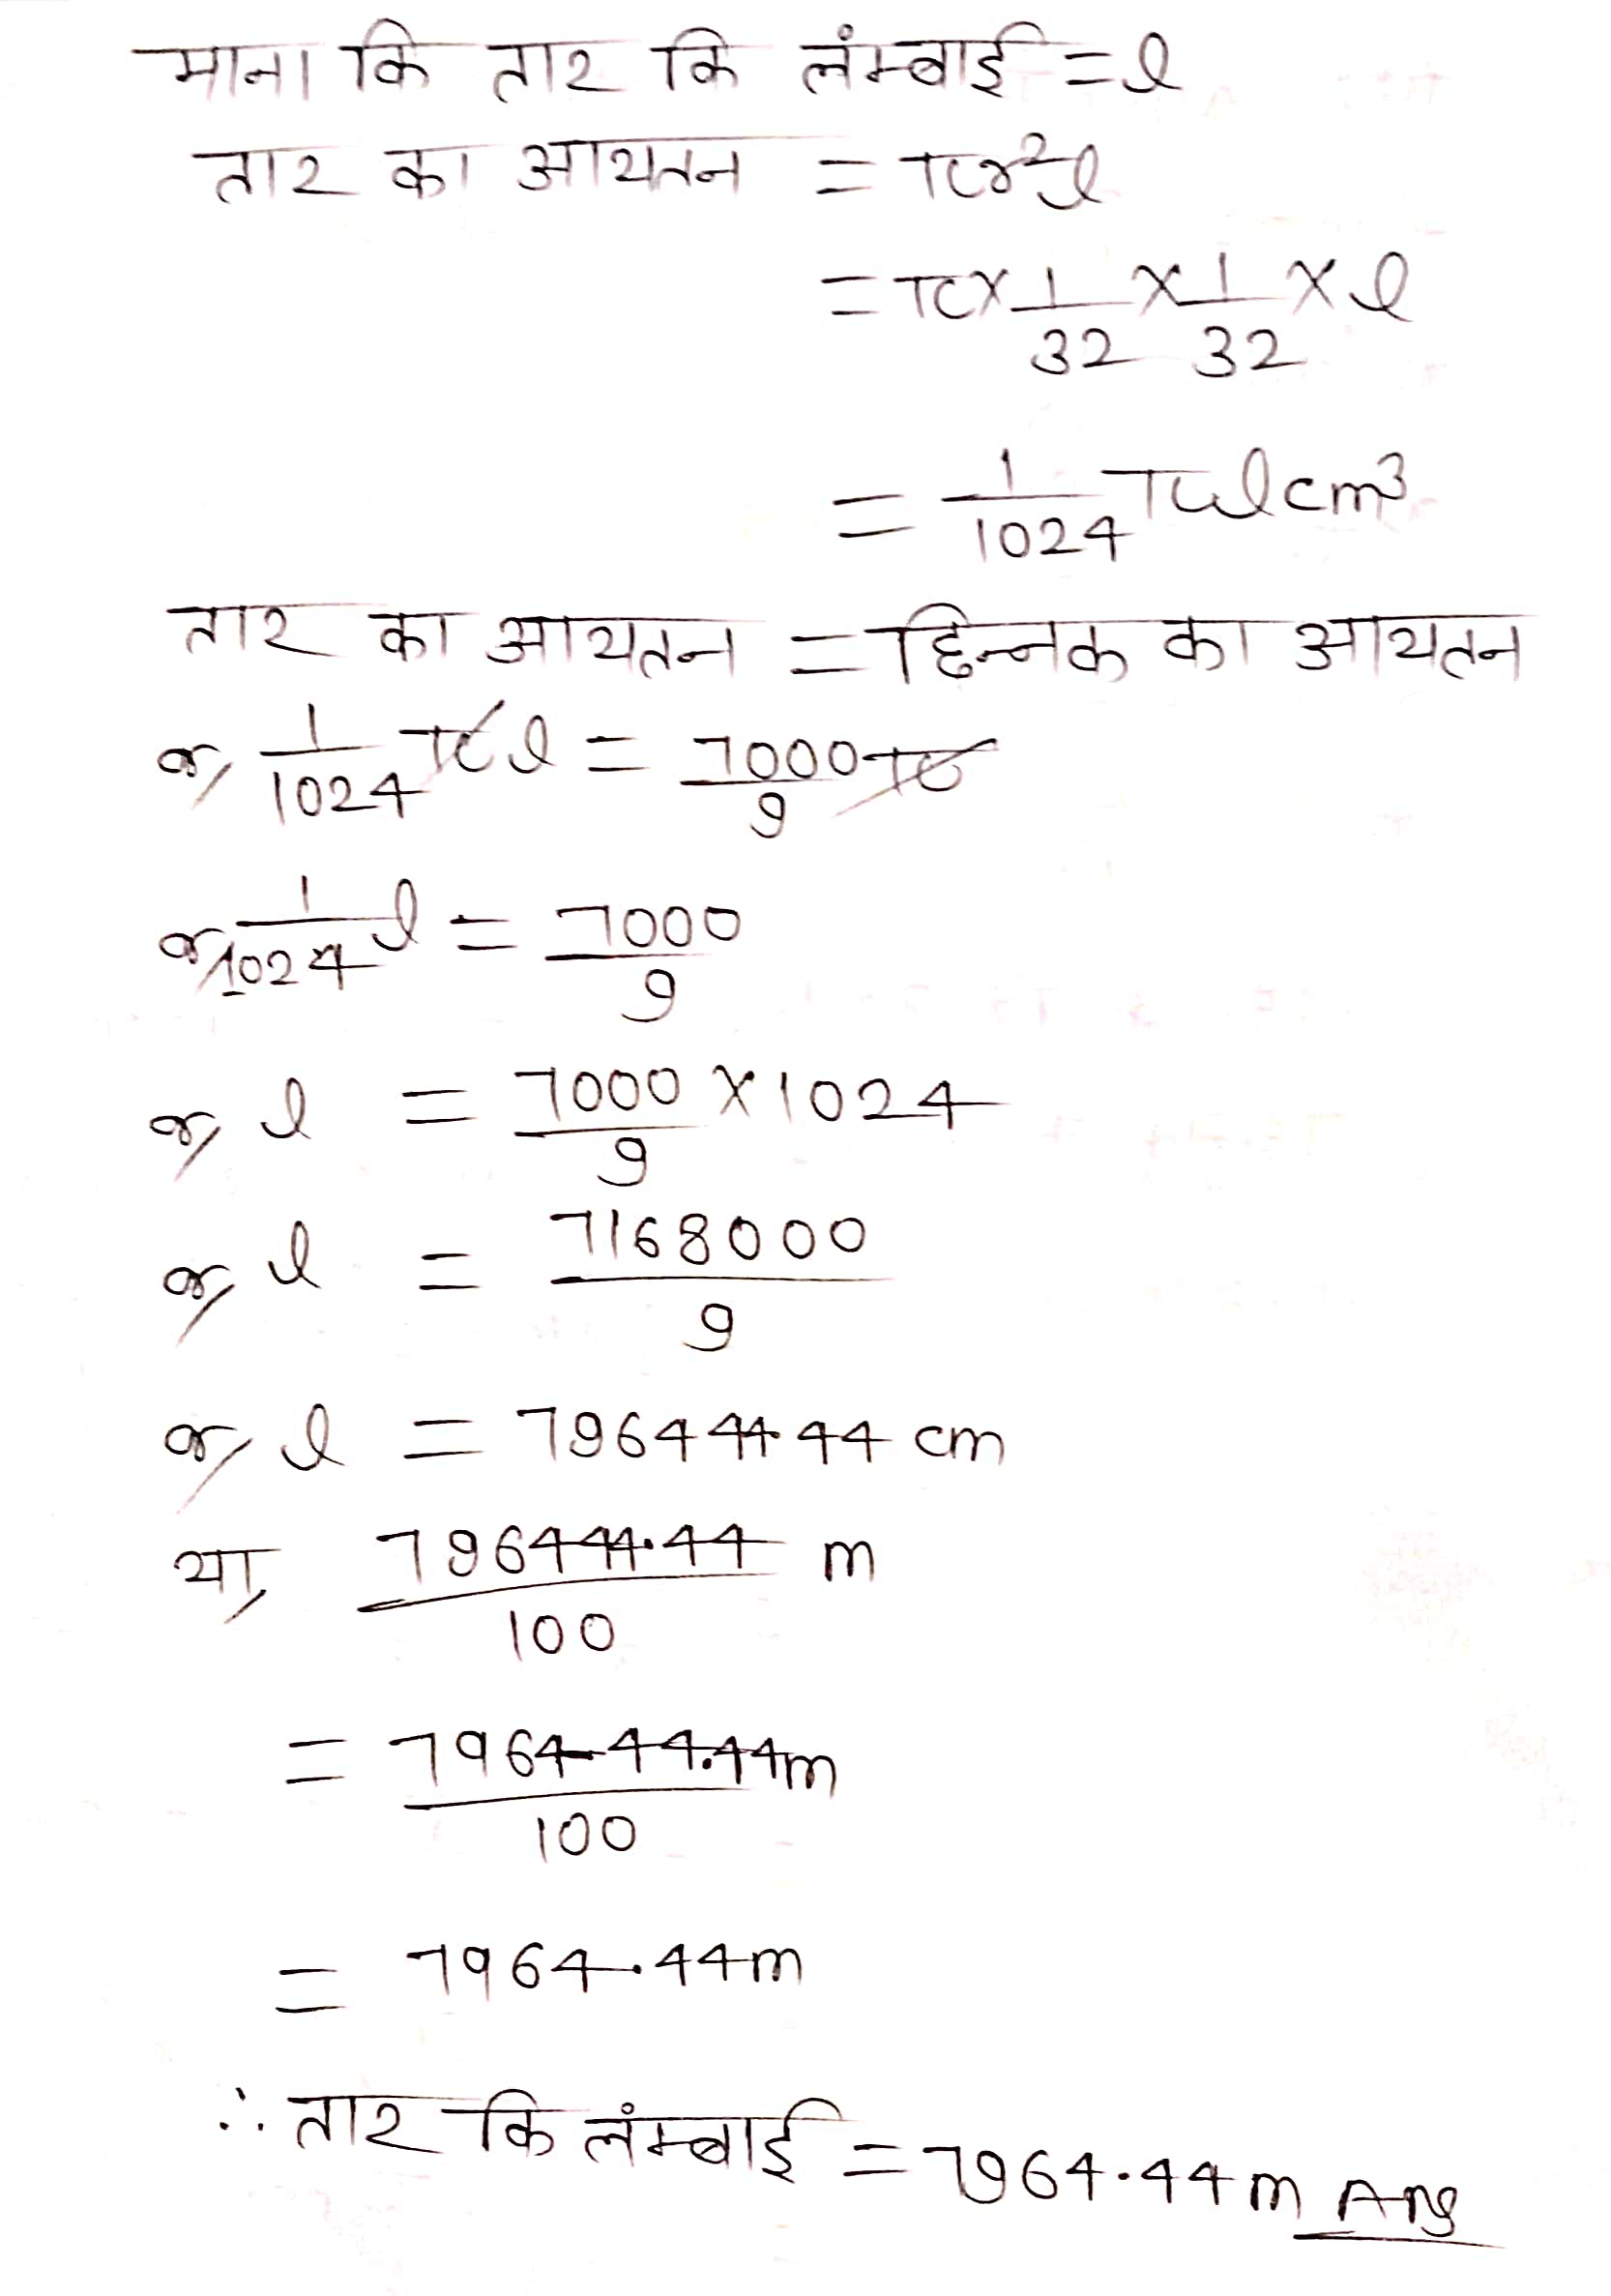 माना कि तार कि लंम्बाई = l
तार का आयतन = πr²l
= π × 1/32 × 1/32 × l
= 1/1024 πl cm³
तार का आयतन = छिन्नक का आयतन
or, 1/1024 πl = 7000π/9
or, 1/1024 l = 7000/9
or, l = 7000/9 × 1024
or, l = 7168000/9
or, l = 796444.44 cm
या, 796444.44/100 m
= 796444.44m/100
= 7964.44m
∴ तार कि लंम्बाई = 7964.44m Ans